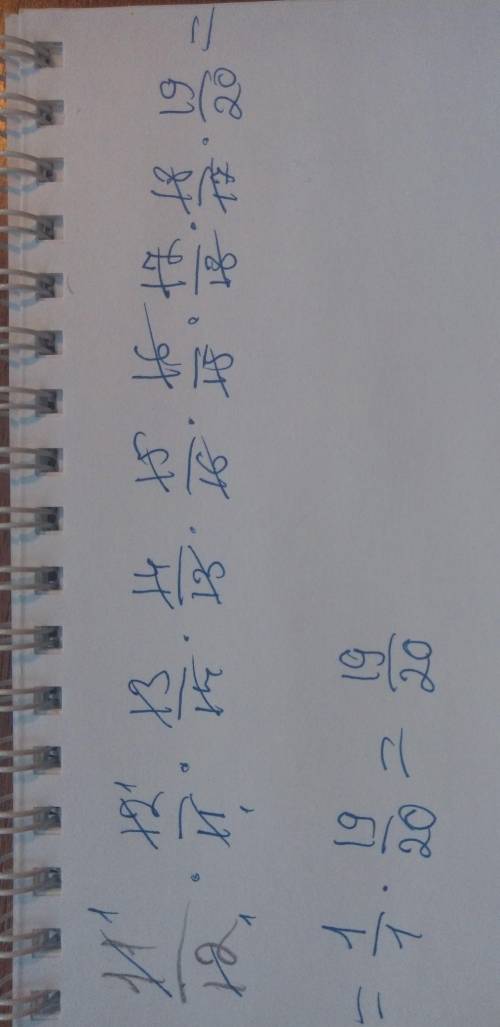 11/12 · 12/11 · 13/14 · 14/13 · 15/16 · 16/15 · 17/18 · 18/17 · 19/20 =
= 1/1 · 19/20 = 19/20